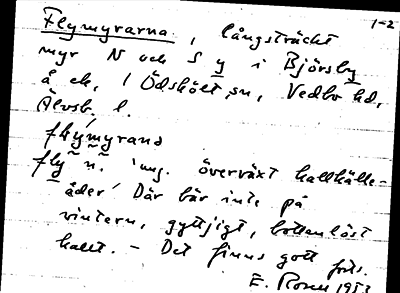 1-2
Flymyrarna, långsträckt
myr N och S y i Björsby
å ek, i Ödskölt sn, Vedbo hd,
Älvsb. l.
flýmyrana
flỹ ñ. 'ung. överväxt kallkälle-
åder' Där bär inte på
vintern, gyttjigt, bottenlöst
kallt. – Det finns gott
E. Rosell 1953